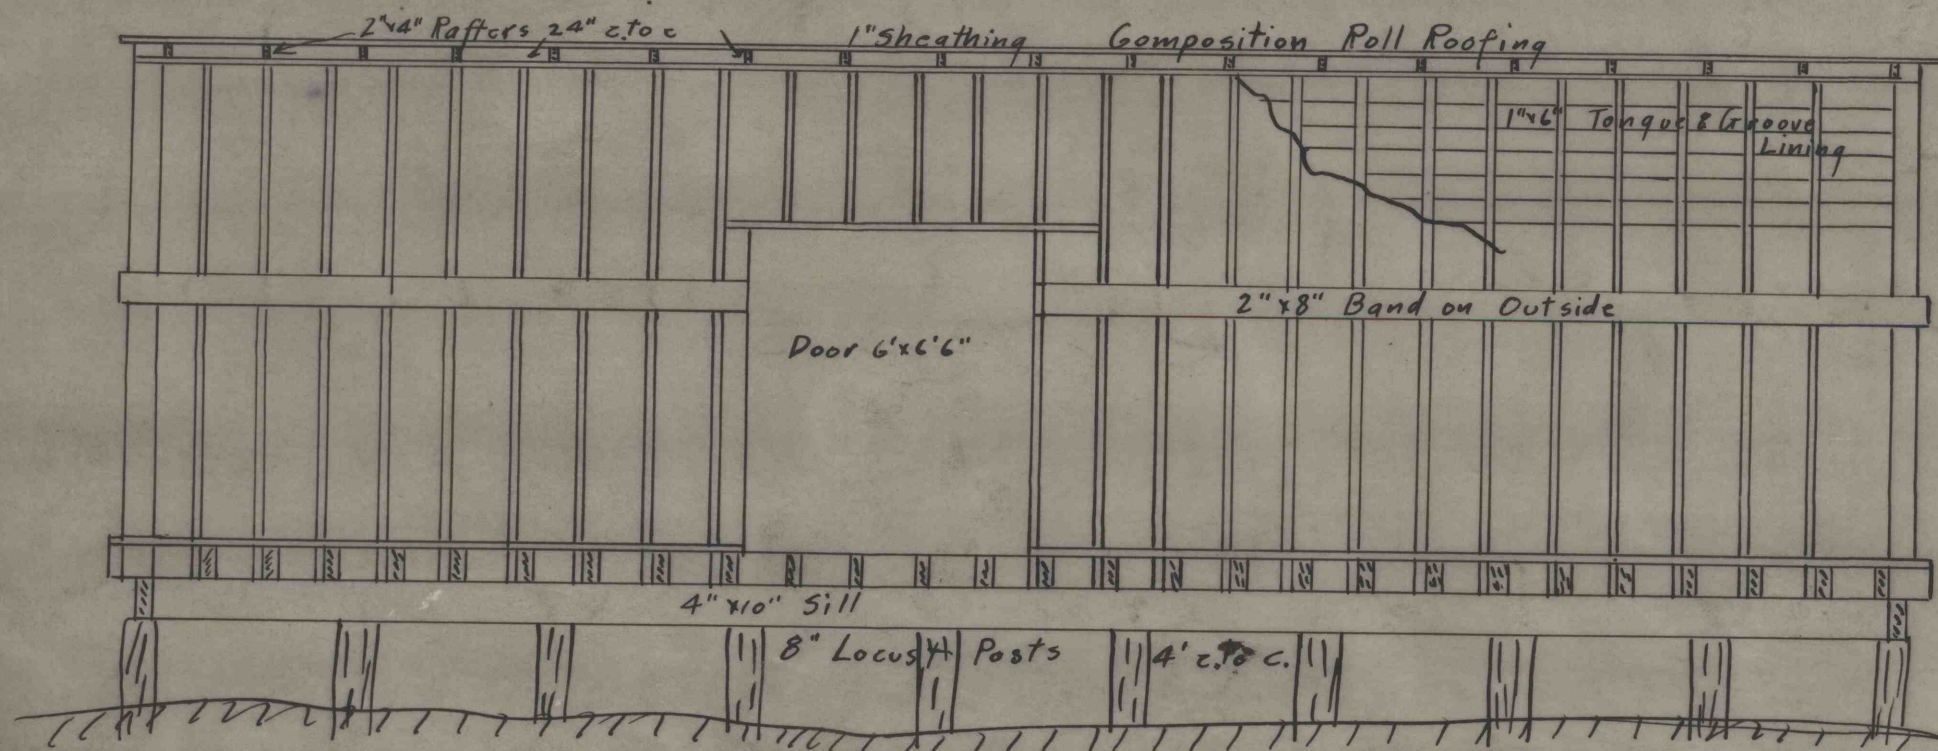 2"x4" Rafters 24" c. to c
1" Sheathing
Composition Roll Roofing
1"x6" Tongue & Groove
Lining
2"x8" Band on Outside
Door 6'x6'6"
4"x10" Sill
8" Locust Posts 4' c. to c.